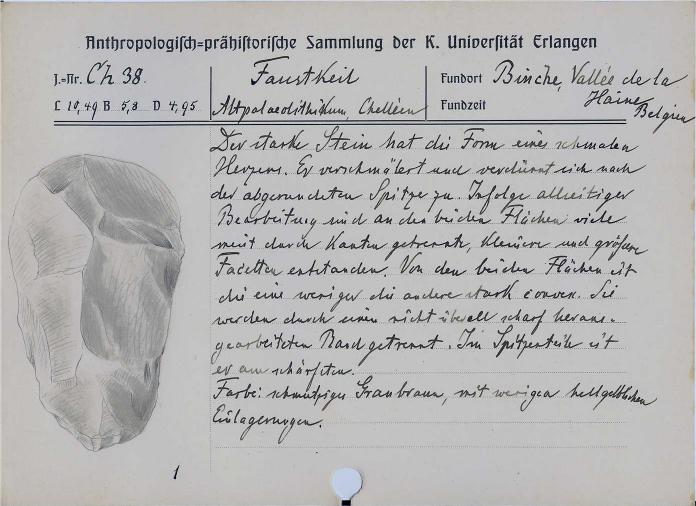 Anthropologisch=prähistorische Sammlung der K. Universität Erlangen
J.=Nr. Ch 38.
L 10,49 B 5,8 D 4,95
Faustkeil
Altpalaeolithikum, Chelléen
Fundort Binche, Vallée de la
Haine
Belgien
Fundzeit
Der starke Stein hat die Form eines schmalen
Herzens. Er verschmälert und verdünnt sich nach
der abgerundeten Spitze zu. Infolge allseitiger
Bearbeitung sind an den beiden Flächen viele
meist durch Kanten getrennte, kleinere und größere
Facetten entstanden. Von den beiden Flächen ist
die eine weniger die andere stark convex. Sie
werden durch einen nicht überall scharf heraus-
gearbeiteten Rand getrennt. Im Spitzenteile ist
er am schärfsten.
Farbe: schmutziges Graubraun, mit wenigen hellgelblichen
Einlagerungen.
1